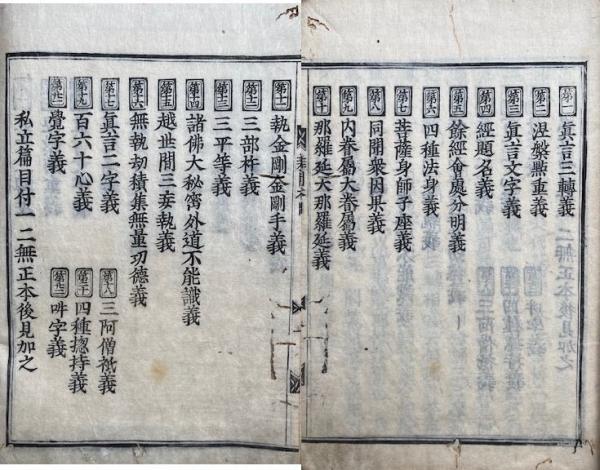 第一 眞言三轉義
第二 涅槃點重義
第三 眞言文字義
第四 經題名義
第五 餘經會處分明義
第六 四種法身義
第七 菩薩身師子座義
第八 同聞衆因果義
第九 内眷属大眷属義
第十 那羅延大那羅延義
第十一 執金剛金剛手義
第十二 三部杵義
第十三 三平等義
第十四 諸佛大秘密外道不能識義
第十五 越世間三妄執義
第十六 無執劫積集無量功德義
第十七 眞言二字義 第十八 三阿僧祇義
第十九 百六十心義 第二十 四種揔持義
覺字義 吽字義
私立篇目付一二無正本後見加之